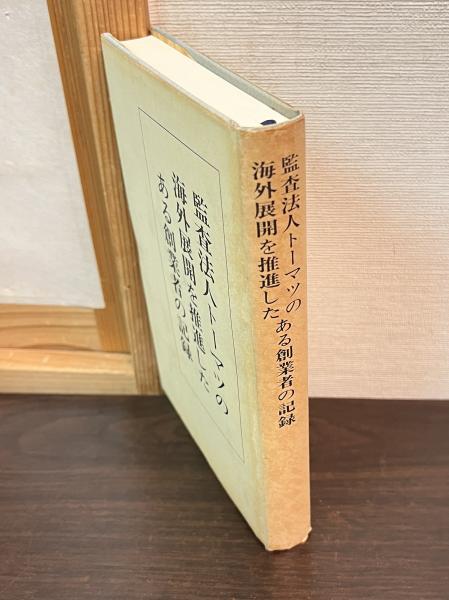 監査法人トーマツの
海外展開を推進した
ある創業者の記録
監査法人トーマツの
海外展開を推進した
ある創業者の記録